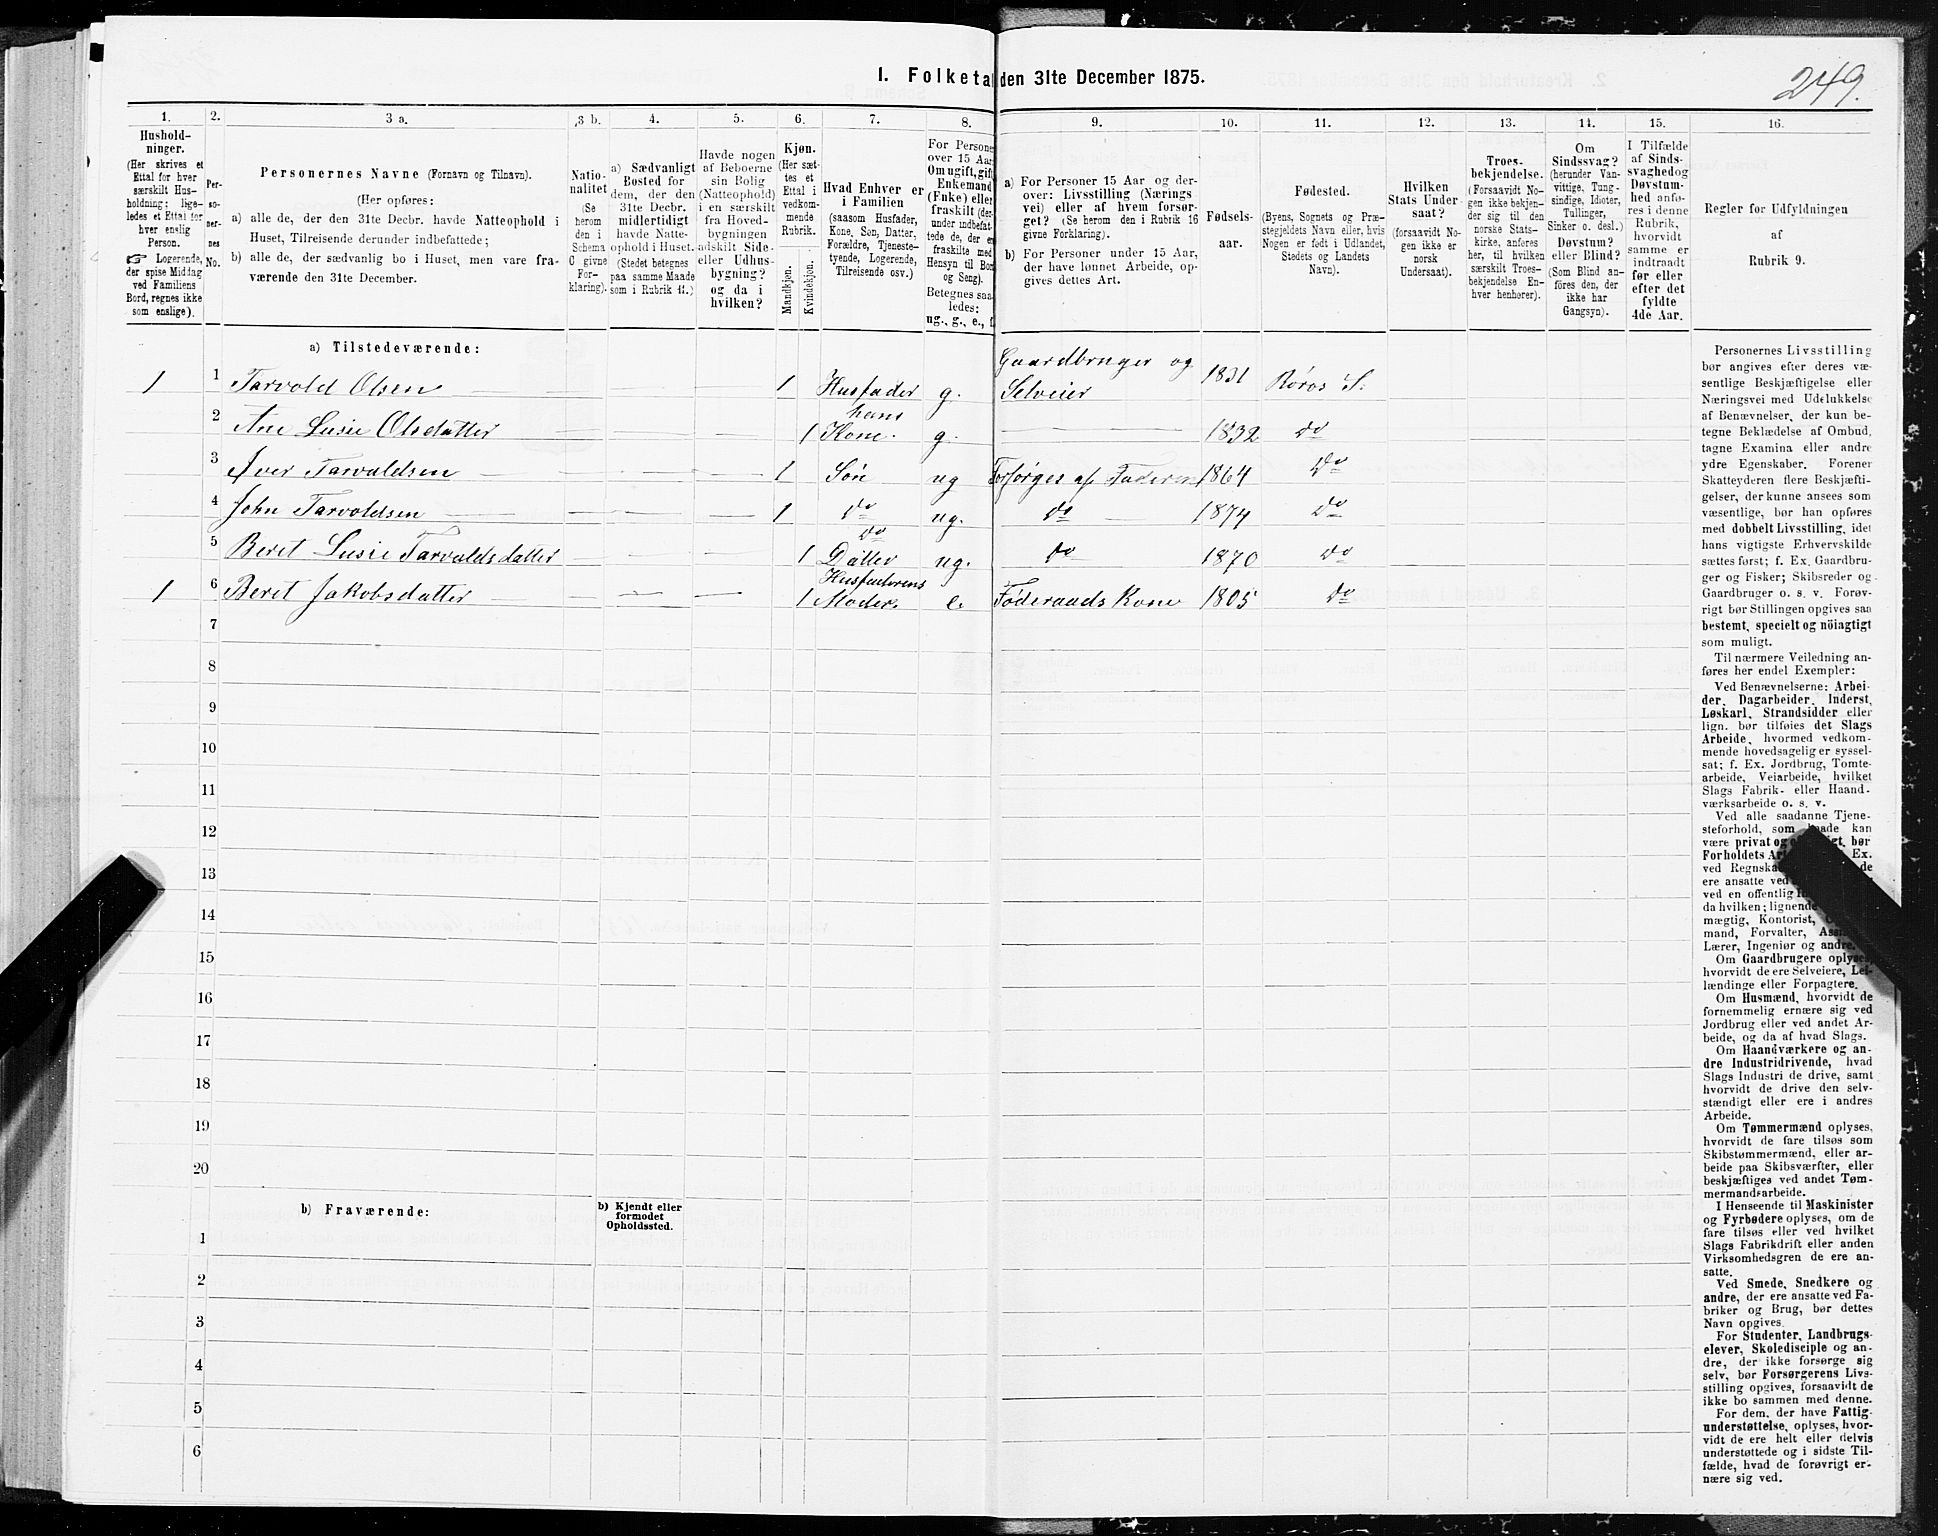 249.
1. Folketa den 31te December 1875.
1. 2. 3 a. 3 b. 4. 5. 6. 7. 8. 9. 10. 11. 12. 13. 14. 15. 16.
Hushold-
ninger.
(Her skrives et
Ettal for hver
særskilt Hus-
holdning; lige-
ledes et Ettal for
hver enslig
Person.
☞ Logerende,
der spise Middag
ved Familiens
Bord, regnes ikke
som enslige).
Per-
so-
ner-
nes
No.
Personernes Navne (Fornavn og Tilnavn).
(Her opføres:
a) alle de, der den 31te Decbr. havde Natteophold i
Huset, Tilreisende derunder indbefattede;
b) alle de, der sædvanlig bo i Huset, men vare fra-
værende den 31te December.
Natio-
nalitet
(Se
herom
den i
Schema
C givne
For-
klaring).
a) Sædvanligt
Bosted for
dem, der den
31te Decbr.
midlertidigt
havde Natte-
ophold i Huset.
(Stedet betegnes
paa samme Maade
som i Rubrik 11.)
Havde nogen
af Beboerne
sin Bolig
(Natteophold)
i en særskilt
fra Hoved-
bygningen
adskilt Side-
eller Udhus-
bygning?
og da i
hvilken?
Kjøn.
(Her sæt-
tes et
Ettal i
vedkom-
mende
Rubrik.
Mandkjøn.
Kvindekjøn.
Hvad Enhver er
i Familien
(saasom Husfader,
Kone, Søn, Datter,
Forældre, Tjeneste-
tyende, Logerende,
Tilreisende osv.)
For Persone
over 15 Aar
Om ugift, gift
Enkemand
(Enke) elle
fraskilt (der-
under indbefat-
tede de, der er
fraskilte med
Hensyn til Bor
og Seng).
Betegnes saa
ledes:
ug., g., e., f.
a) For Personer 15 Aar og der-
over: Livsstilling (Nærings
vei) eller af hvem forsør-
get? (Se herom den i Rubrik 16
givne Forklaring).
b) For Personer under 15 Aar,
der have lønnet Arbeide, op-
gives dettes Art.
Fødsels-
aar.
Fødested.
(Byens, Sognets og Præ-
stegjeldets Navn eller, hvis
Nogen er født i Udlandet,
Stedets og Landets
Navn).
Hvilken
Stats Under-
saat?
(forsaavidt No-
gen ikke er
norsk
Undersaat).
Troes-
bekjendelse.
(Forsaavidt No-
gen ikke bekjen-
der sig til den
norske Stats-
kirke, anføres
her, til hvilken
særskilt Troes-
bekjendelse En-
hver henhører).
Om
Sindssvag?
(herunder Van-
vittige, Tung-
sindige, Idioter,
Tullinger,
Sinker o. desl.)
Døvstum?
eller Blind?
(Som Blind an-
føres den, der
ikke har
Gangsyn).
I Tilfælde
af Sinds-
svaghed og
Døvstum-
hed anfø-
res i denne
Rubrik,
hvorvidt
samme er
indtraadt
før eller
efter det
fyldte
4de Aar.
Regler for Udfyldningen
af
Rubrik 9.
a) Tilstedeværende:
1 1 Tarvald Olsen 1 Husfader g. Gaardbruger og Selveier 1831 Røros S.
2 Ane Lusie Olsdatter 1 hans Kone. g. 1832 do
3 Iver Tarvaldsen 1 Søn ug Forsørges af Faderen 1864 do
4 John Tarvoldsen 1 do ug. do 1874 do
5 Beret Lusie Tarvaldsdatter 1 do Datter ug. do 1870 do
1 6 Beret Jakobsdatter 1 Husfaderens Moder e. Føderaads Kone 1805 do
7
8
9
10
11
12
13
14
15
16
17
18
19
20
b) Fraværende:
b) Kjendt eller
formodet
Opholdssted.
1
2
3
4
5
6
Personernes Livsstilling
bør angives efter deres væ-
sentlige Beskjæftigelse eller
Næringsvei med Udelukkelse
af Benævnelser, der kun be-
tegne Beklædelse af Ombud,
tagne Examina eller andre
ydre Egenskaber. Forener
Skatteyderen flere Beskjæfti-
gelser, der kunne ansees som
væsentlige, bør han opføres
med dobbelt Livsstilling, idet
hans vigtigste Erhvervskilde
sættes først; f. Ex. Gaardbru-
ger og Fisker; Skibsreder og
Gaardbruger o. s. v. Forøv-
rigt bør Stillingen opgives saa
bestemt, specielt og nöiagtigt
som muligt.
Til nærmere Veiledning an-
føres her endel Exempler:
Ved Benævnelserne: Arbei-
der, Dagarbeider, Inderst,
Løskarl, Strandsidder eller
lign. bør tilføies det Slags
Arbeide, hvormed vedkom-
mende hovedsagelig er syssel-
sat; f. Ex. Jordbrug, Tomte-
arbeide, Veiarbeide, hvilket
Slags Fabrik- eller Haand-
værksarbeide o. s. v.
Ved alle saadanne Tjene-
steforhold, som baade kan
være privat og offentligt, bør
Forholdets Art Ex.
ved Regnska de
ere ansatte ved
ved en offentlig
da hvilken; lignende
mægtig, Kontorist,
mand, Forvalter, Assi
Lærer, Ingeniør og andre.
Om Gaardbrugere oplyses,
hvorvidt de ere Selveiere, Lei-
lændinge eller Forpagtere.
Om Husmænd, hvorvidt de
fornemmelig ernære sig ved
Jordbrug eller ved andet Ar-
beide, og da af hvad Slags.
Om Haandværkere og an-
dre Industridrivende, hvad
Slags Industri de drive, samt
hvorvidt de drive den selv-
stændigt eller ere i andres
Arbeide.
Om Tømmermænd oplyses,
hvorvidt de fare tilsøs som
Skibstømmermænd, eller ar-
beide paa Skibsværfter, eller
beskjæftiges ved andet Tøm-
mermandsarbeide.
I Henseende til Maskinister
og Fyrbødere oplyses, om de
fare tilsøs eller ved hvilket
Slags Fabrikdrift eller anden
Virksomhedsgren de ere an-
satte.
Ved Smede, Snedkere og
andre, der ere ansatte ved Fa-
briker og Brug, bør dettes
Navn opgives.
For Studenter, Landbrugs-
elever, Skoledisciple og an-
dre, der ikke forsørge sig
selv, bør Forsørgerens Livs-
stilling opgives, forsaavidt de
ikke bo sammen med denne.
For dem, der have Fattig-
understøttelse, oplyses, hvor-
vidt de ere helt eller delvis
understøttede og i sidste Til-
fælde, hvad de forøvrigt er-
nære sig ved.